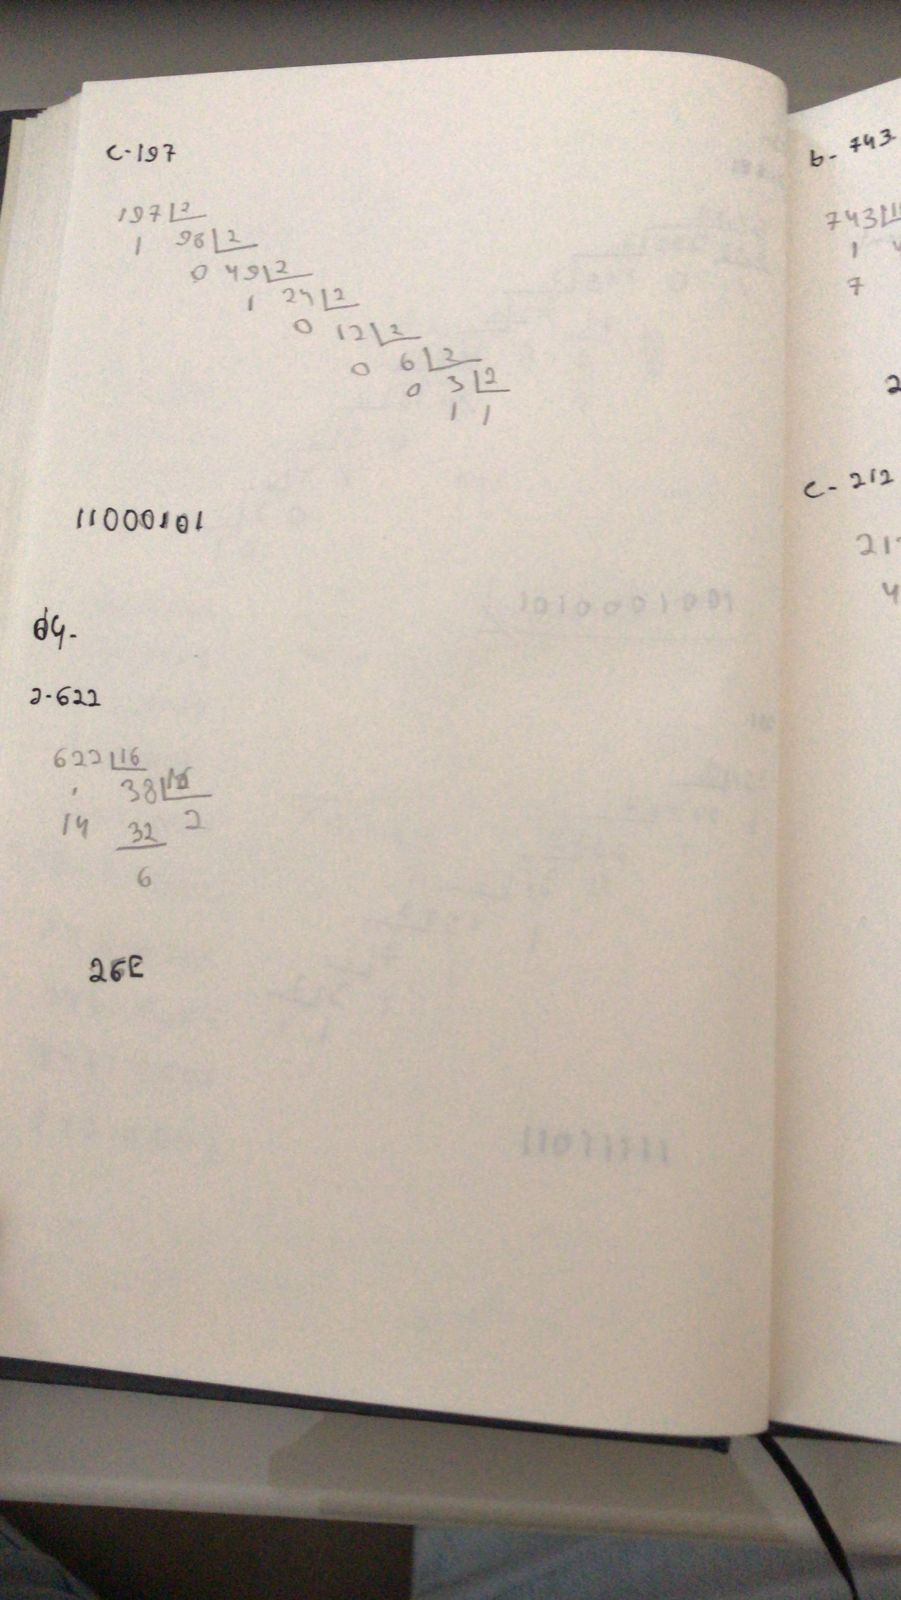 c-197
197 2
1 98 2
0 49 2
1 24 2
0 12 2
0 6 2
0 3 2
1 1
11000101
04-
a-622
622 16
38 16
14 32 2
6
26E
b- 743
743
1
7
2
c- 212
21
4